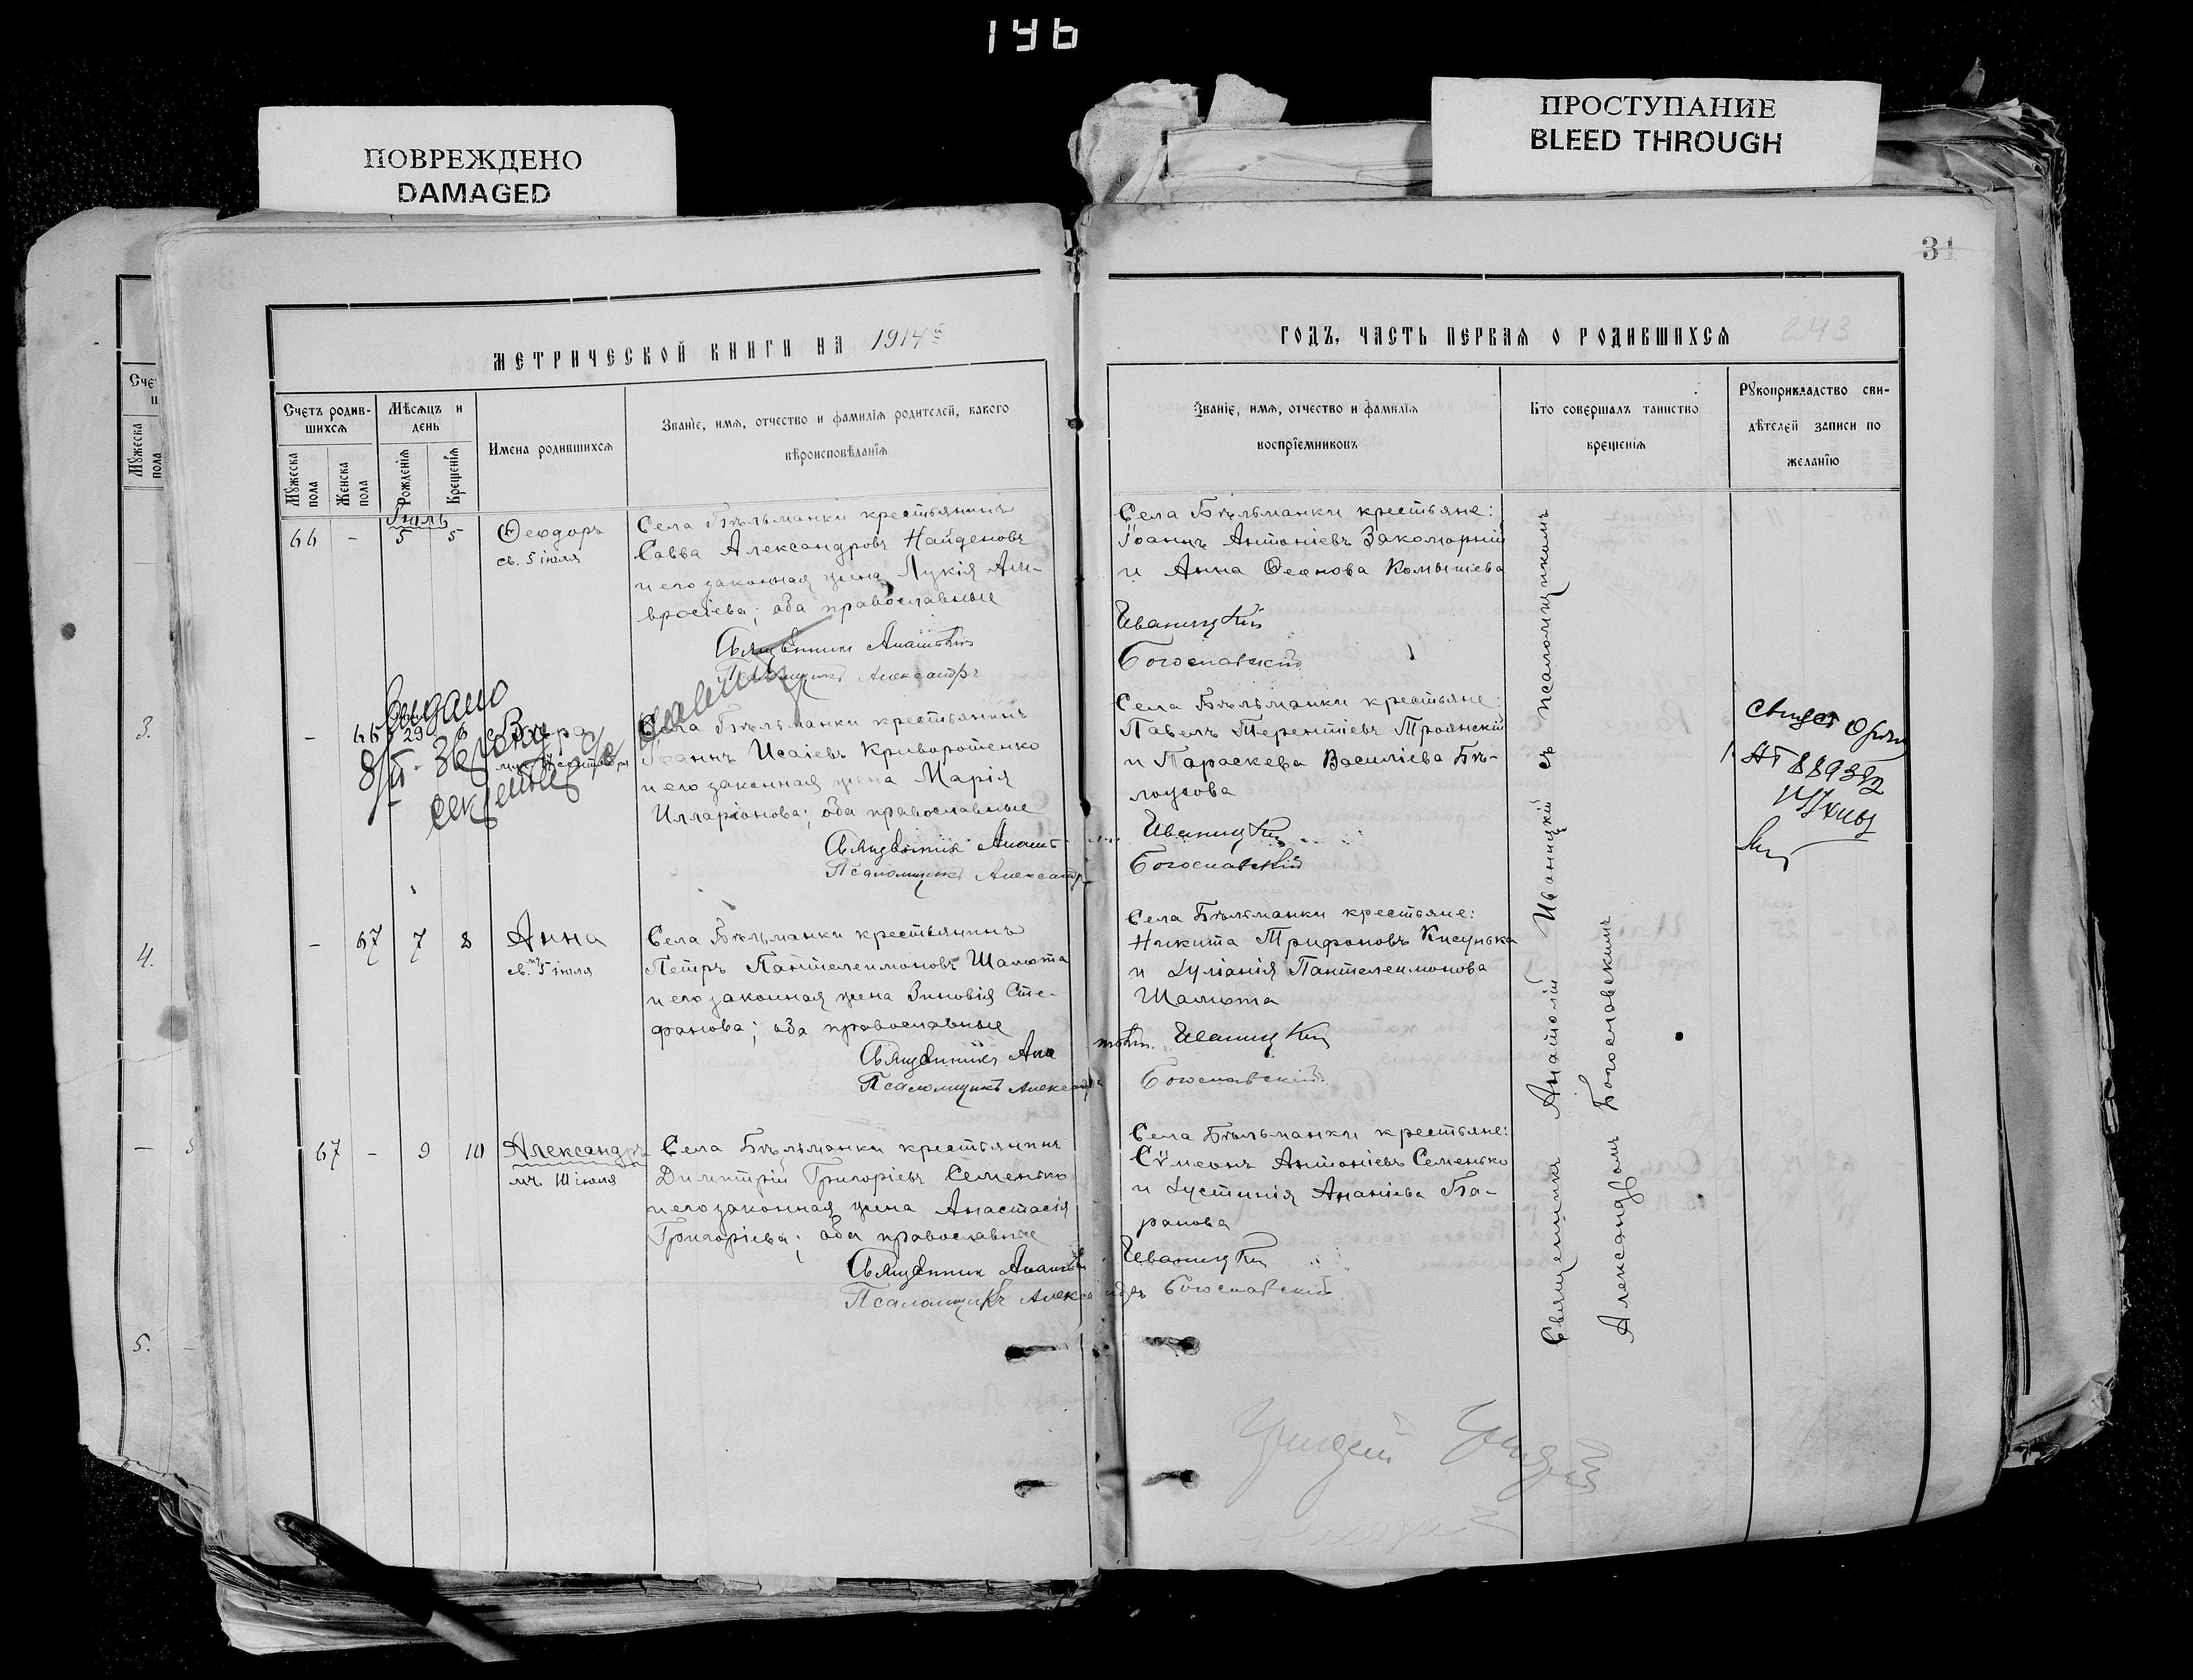 146
ПОВРЕЖДЕНО
DAMAGED
ПРОСТУПАНИЕ
BLEED THROUGH
31
МЕТРИЧЕСКОЙ КНИГИ НА 1914й
ГОДЪ, ЧАСТЬ ПЕРВАЯ О РОДИВШИХСЯ
243
Счетъ родив-
шихся
Мѣсяцъ и
день
Имена родившихся
Званіе, имя, отчество и фамилія родителей, какого
вѣроисповѣданія
Мужеска
пола
Женска
пола
Рожденія
Крещенія
Званіе, имя, отчество и фамилія
воспріемниковъ
Кто совершалъ таинство
крещенія
Рукоприкладство сви-
дѣтелей записи по
желанію
Іюль
66 - 5 5 Ѳеодоръ
св. 5 іюля
Села Бѣльманки крестьянинъ
Савва Александровъ Найденовъ
и его законная жена Лукія Ам-
вросіева; оба православные
Священникъ Анатолій
Псаломщикъ Александръ
Села Бѣльманки крестьяне:
Іоаннъ Антоніевъ Закоморній
и Анна Ѳеонова Комышева
Иваницкій
Богославскій
Выдано
- 66 29 Вѣра
Села Бѣльманки крестьянинъ
Іоаннъ Исаіевъ Криворотенко
и его законная жена Марія
Илларіонова; оба православные
Священникъ Анатолій
Псаломщикъ Александръ
Села Бѣльманки крестьяне:
Павелъ Терентіевъ Троянскій
и Параскева Василіева Бѣ-
лоусова
Иваницкій
Богославскій
- 67 7 8 Анна
св. 5 іюля
Села Бѣльманки крестьянинъ
Петръ Пантелеимоновъ Шалюта
и его законная жена Зиновія Сте-
фанова; оба православные
Священникъ Анатолій
Псаломщикъ Александръ
Села Бѣльманки крестьяне:
Никита Трифоновъ Кисунька
и Іуліанія Пантелеимонова
Шалюта
Иваницкій
Богославскій
67 - 9 10 Александръ
мч. 10 іюля
Села Бѣльманки крестьянинъ
Димитрій Григоріевъ Семенько
и его законная жена Анастасія
Григоріева; оба православные
Священникъ Анатолій
Псаломщикъ Александръ
Села Бѣльманки крестьяне:
Сѵмеонъ Антоніевъ Семенько
и Іустинія Ананіева Ба-
ранова
Иваницкій
Богославскій
Священникъ Анатолій Иваницкій съ псаломщикомъ
Александромъ Богословскимъ
3.
4.
5.